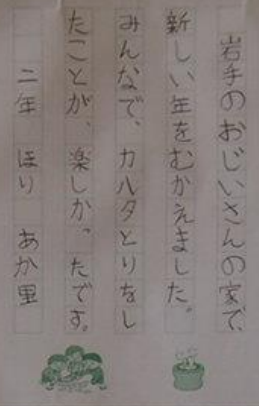 岩手のおじいさんの家で、
新しい年をむかえました。
みんなで、カルタとりをし
たことが、楽しかったです。
二年 ほり あか里